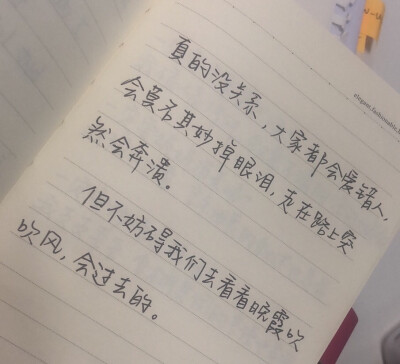 真的没关系，大家都会爱错人，
会莫名其妙掉眼泪，走在路上突
然会奔溃。
但不妨碍我们去看看晚霞吹
吹风，会过去的。